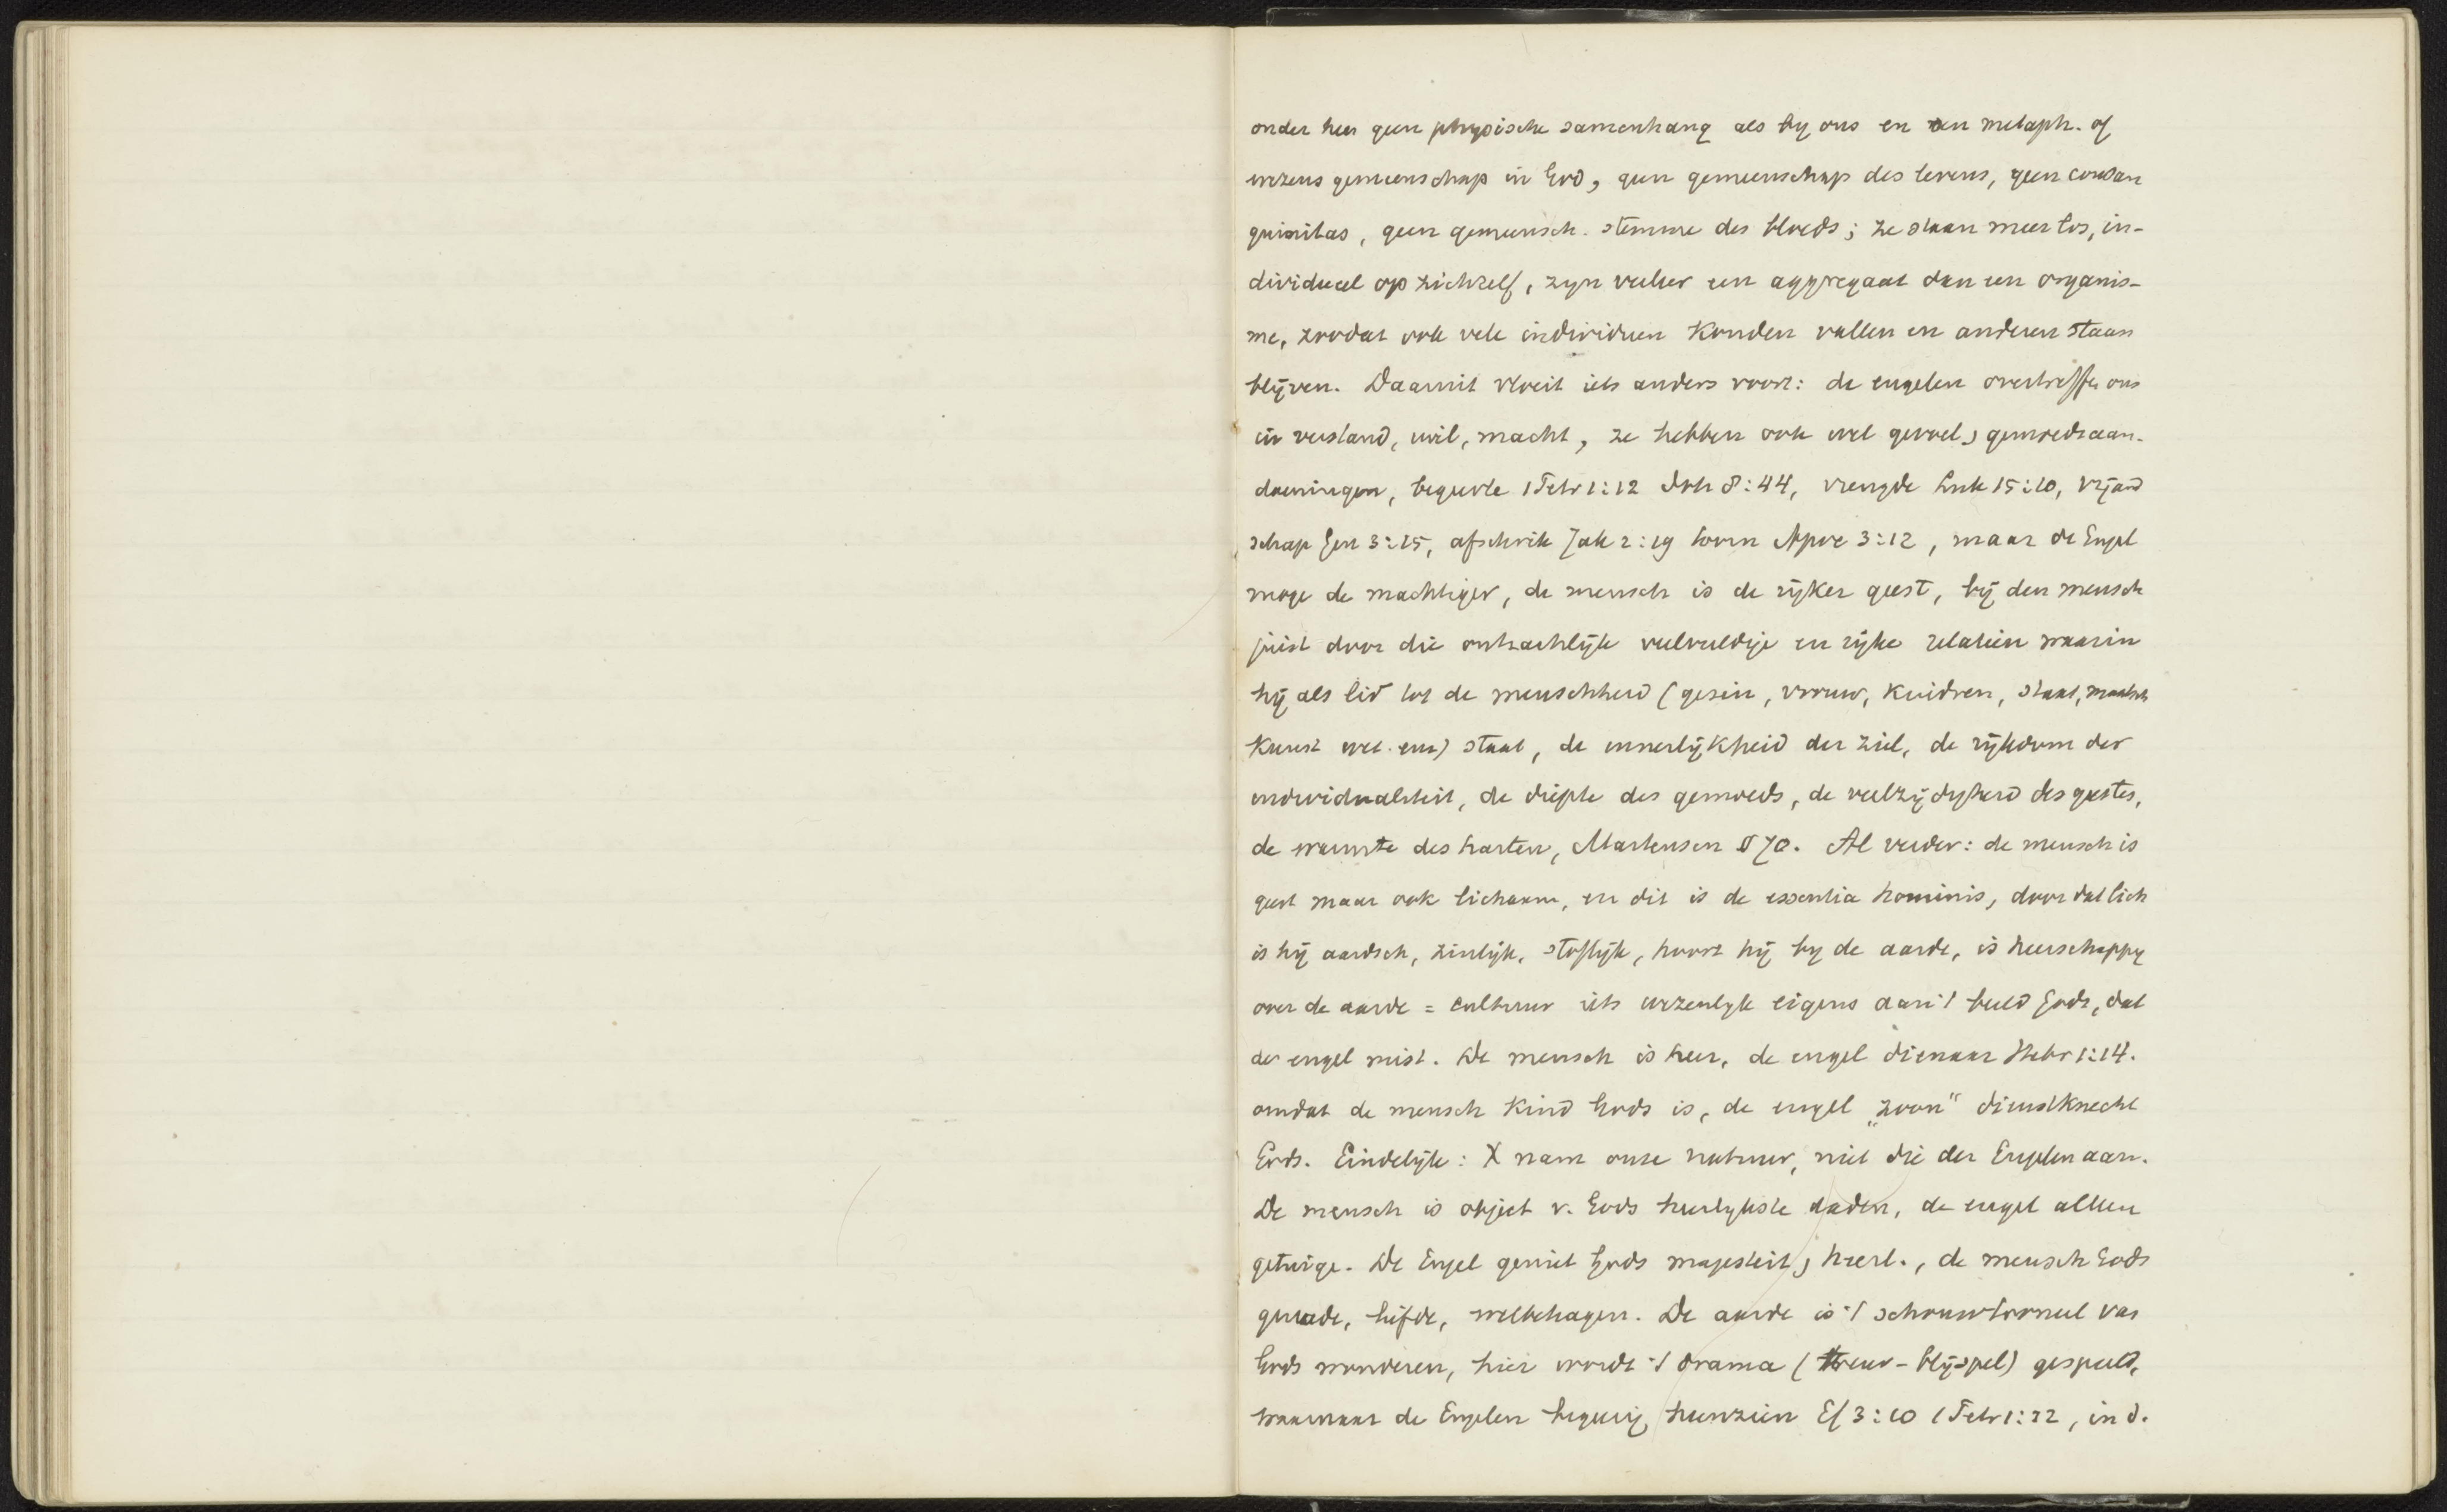 onder hen geen physische samenhang als by ons en een metaph. of
wezens gemeenschap in God, geen gemeenschap des levens, geen consan
guinitas, geen gemeensch. stemme des bloeds; ze staan meer los, in-
dividueel op zichzelf, zyn veeleer een aggregaat dan een organis-
me, zoodat ook vele individuen konden vallen en anderen staan
blijven. Daarmit vloeit iets anders voort: de engelen overtreffen ons
in verstand, wil, macht, ze hebben ook wel gevoel, gemoedsaan-
doeningen, begeerte 1 Petr 1:12 Joh 8:44, vreugde Luk 15:10, vijand
schap Gen 3:15, afschrik Jak 2:19 toorn Apoc 3:12, maar de Engel
moge de machtiger, de mensch is de rijker geest, bij den mensch
juist door die ontzachlijk veelvuldige en rijke relatien waarin
hij als lid tot de menschheid (gezin, vrouw, kindren, staat, maatsch
kunst wet. enz) staat, de innerlijkheid der ziel, de rijkdom der
individualiteit, de diepte des gemoeds, de veelzijdigheid des geestes,
de warmte des harten, Martensen § 70. Al verder: de mensch is
geest maar ook lichaam, en dit is de essentia hominis, door dat lich
is hij aardsch, zinlijk, stoflijk, hoort hij by de aarde, is heerschappy
over de aarde = cultuur iets wezenlyk eigens aan 't beeld Gods, dat
der engel mist. De mensch is heer, de engel dienaar Hebr 1:14.
omdat de mensch kind Gods is, de engel „zoon" dienstknecht
Gods. Eindelijk: X nam onze natuur, niet die der Engelen aan.
De mensch is object v. Gods heerlykste daden, de engel alleen
getuige. De Engel geniet Gods majesteit, heerl., de mensch Gods
genade, liefde, welbehagen. De aarde is 't schouwtooneel van
Gods wonderen, hier wordt 't drama (treur-blijspel) gespeeld,
waarnaar de Engelen begeerig heenzien Ef 3:10 1 Petr 1:12, in d.